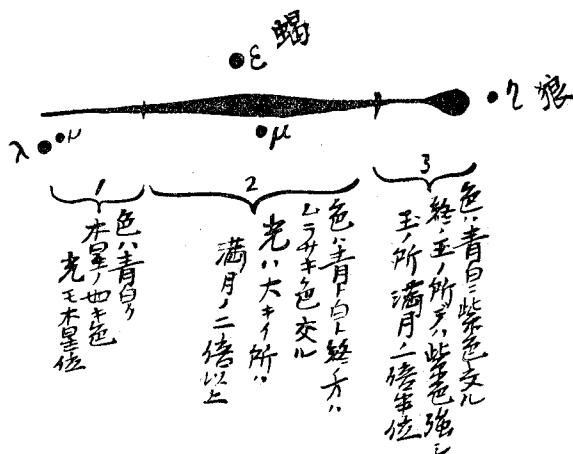 ε 蝎
λ μ
μ
η 狼
1
色ハ青白ク
木星ノ如キ色
光モ木星位
2
色ハ青ト白ト終ノ方ハ
ムラサキ色交ル
光ハ大キイ所ハ
満月ノ二倍以上
3
色ハ青白ニ紫色交ル
終ノ玉ノ所デハ紫色強シ
玉ノ所満月ノ二倍半位